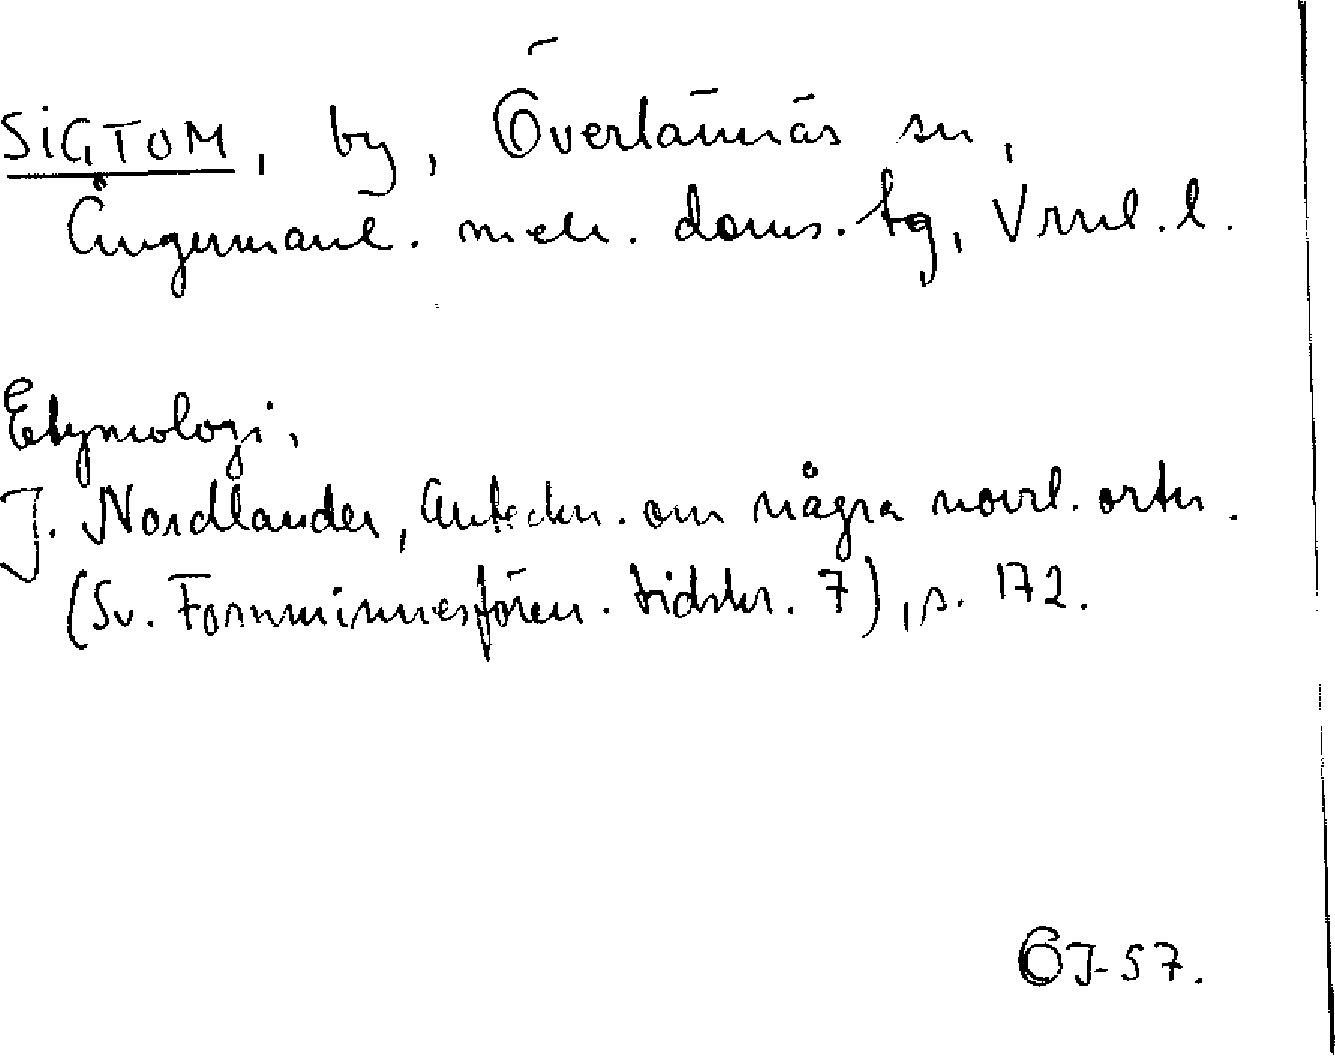 SIGTOM, by, Överlännäs sn,
Ångermanl. meln. doms. tg, Vrnl. l.
Etymologi,
J. Nordlander, Anteckn. om några norrl. ortn.
(Sv. Fornminnesfören. tidskr. 7), s. 172.
OJ-57.